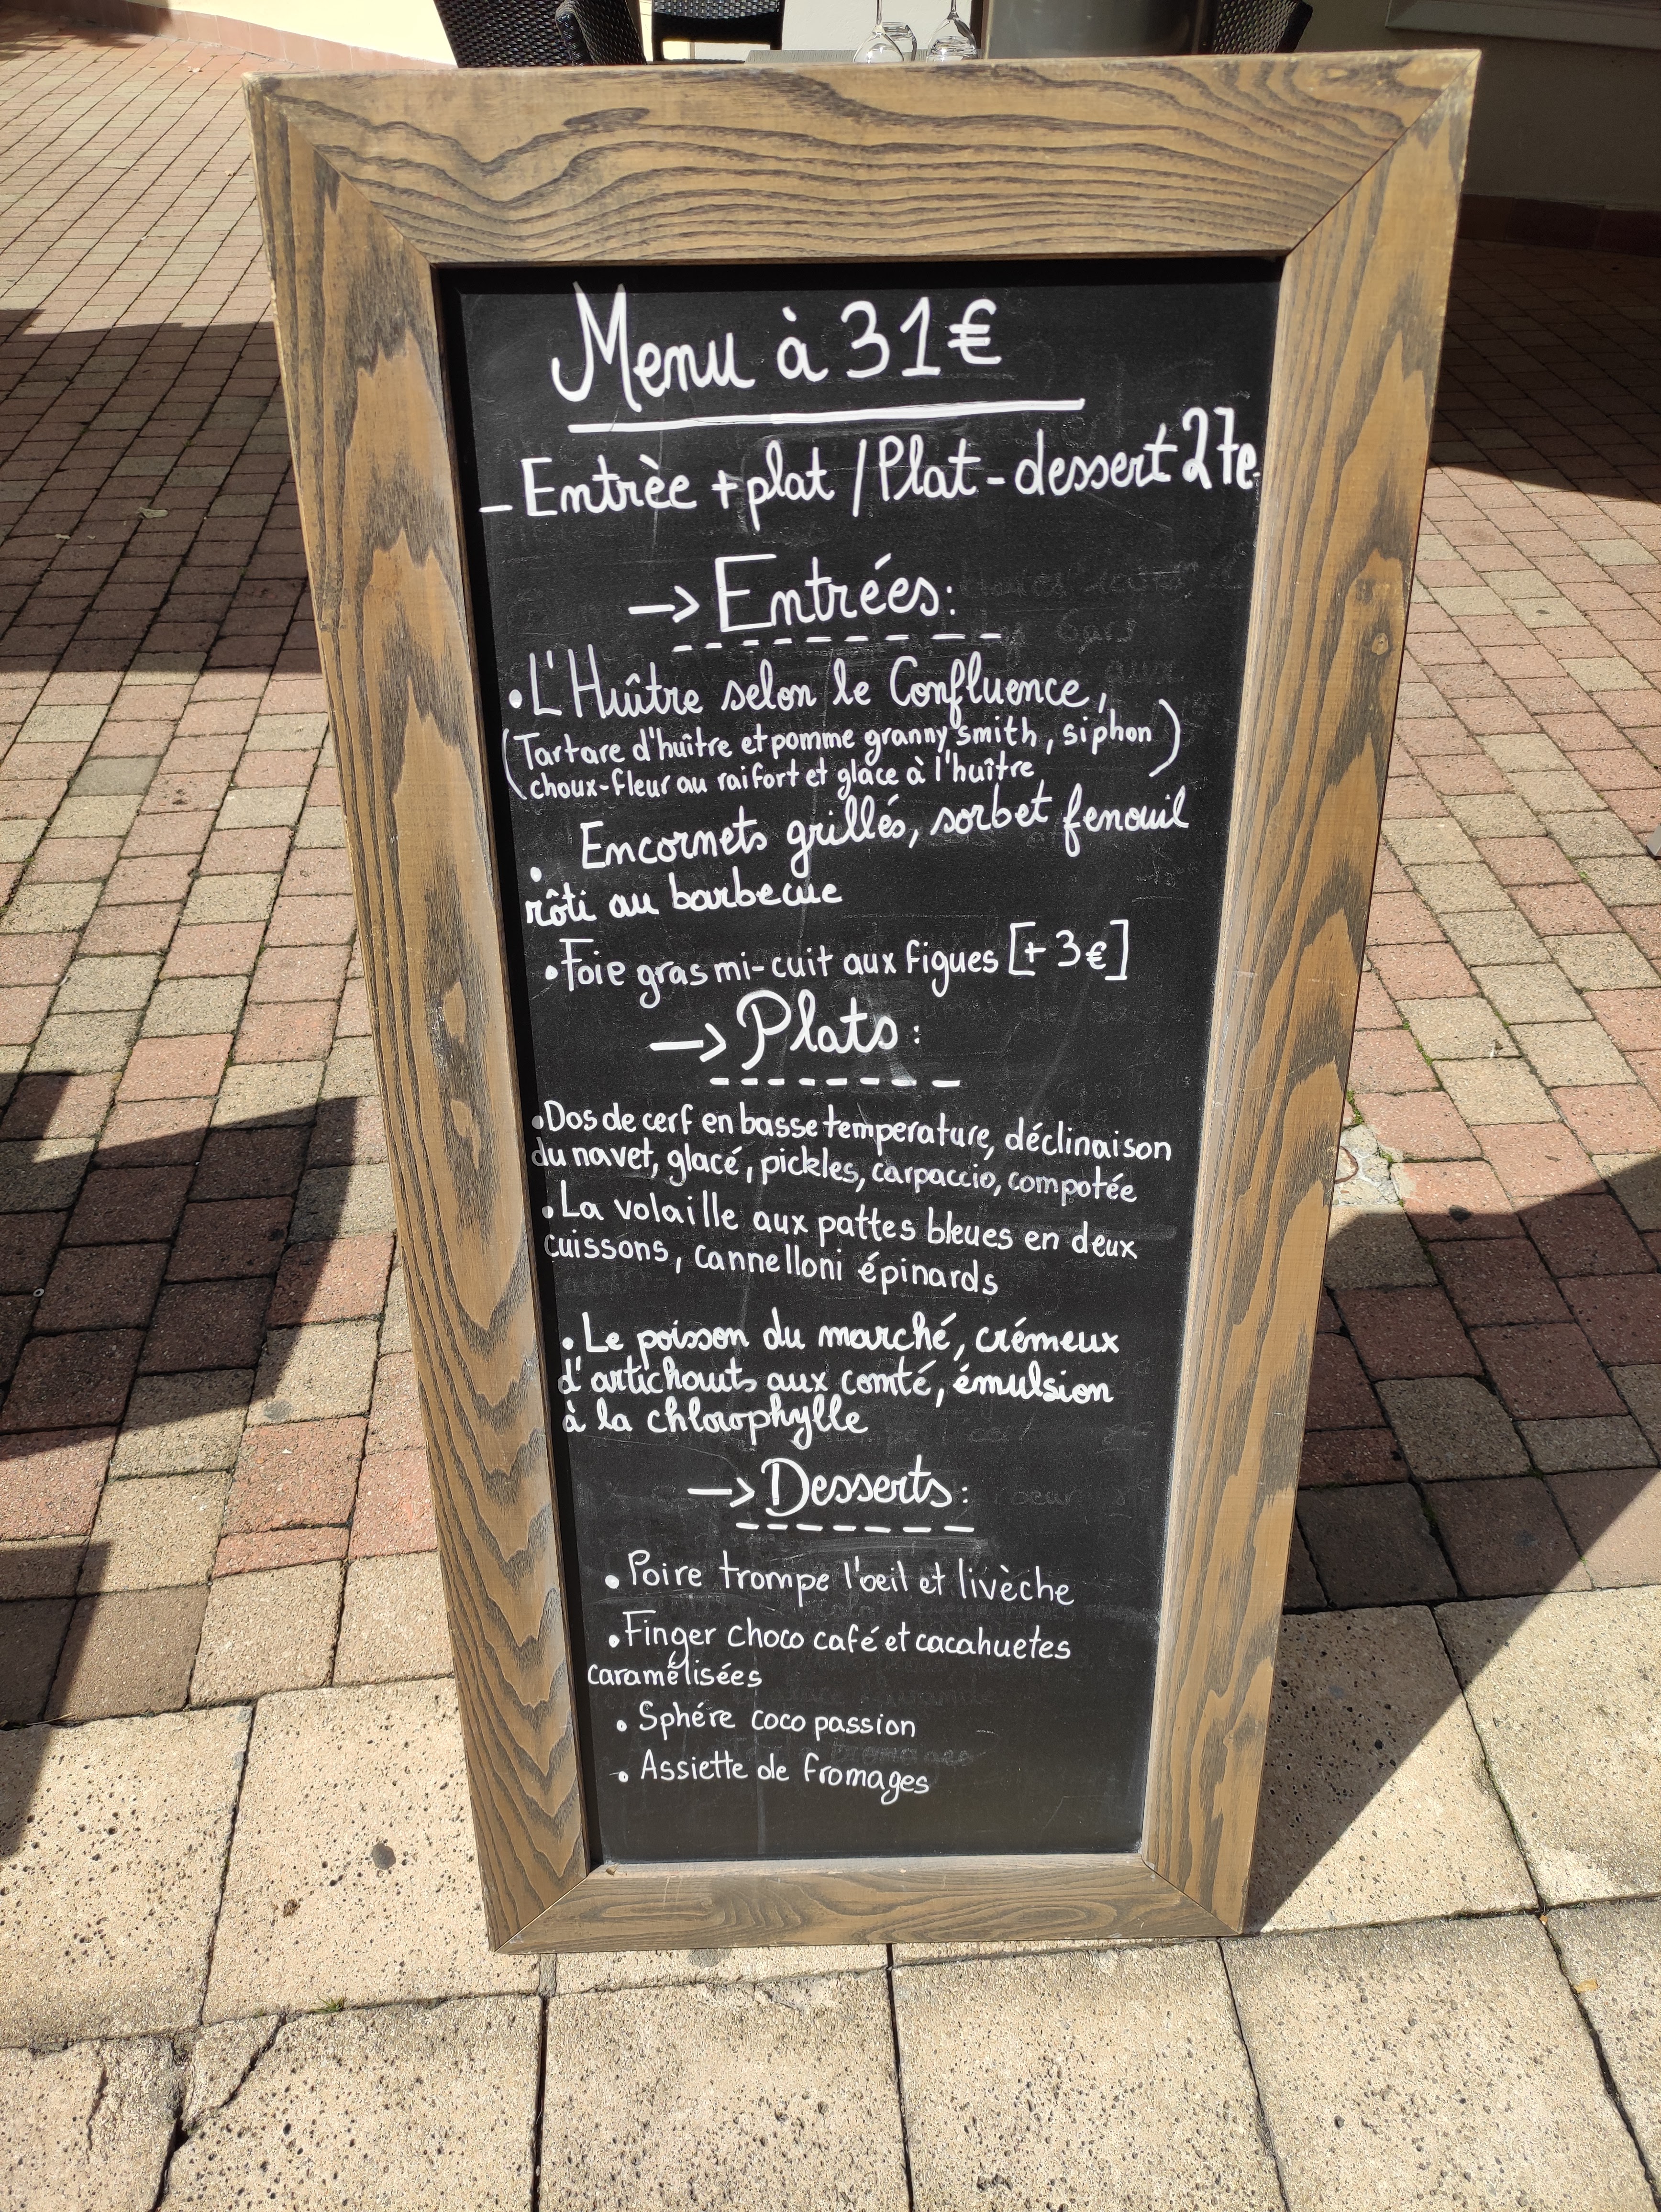 Menu à 31€
- Entrèe + plat / Plat - dessert 27e
→ Entrées:
• L'Huître selon le Confluence,
(Tartare d'huître et pomme granny smith, siphon)
choux-fleur au raifort et glace à l'huître
• Encornets grillés, sorbet fenouil
rôti au barbecue
• Foie gras mi-cuit aux figues [+ 3€]
→ Plats:
• Dos de cerf en basse temperature, déclinaison
du navet, glacé, pickles, carpaccio, compotée
• La volaille aux pattes bleues en deux
cuissons, cannelloni épinards
• Le poisson du marché, crémeux
d'artichauts aux comté, émulsion
à la chlorophylle
→ Desserts:
• Poire trompe l'oeil et livèche
• Finger choco café et cacahuetes
caramélisées
• Sphére coco passion
• Assiette de fromages